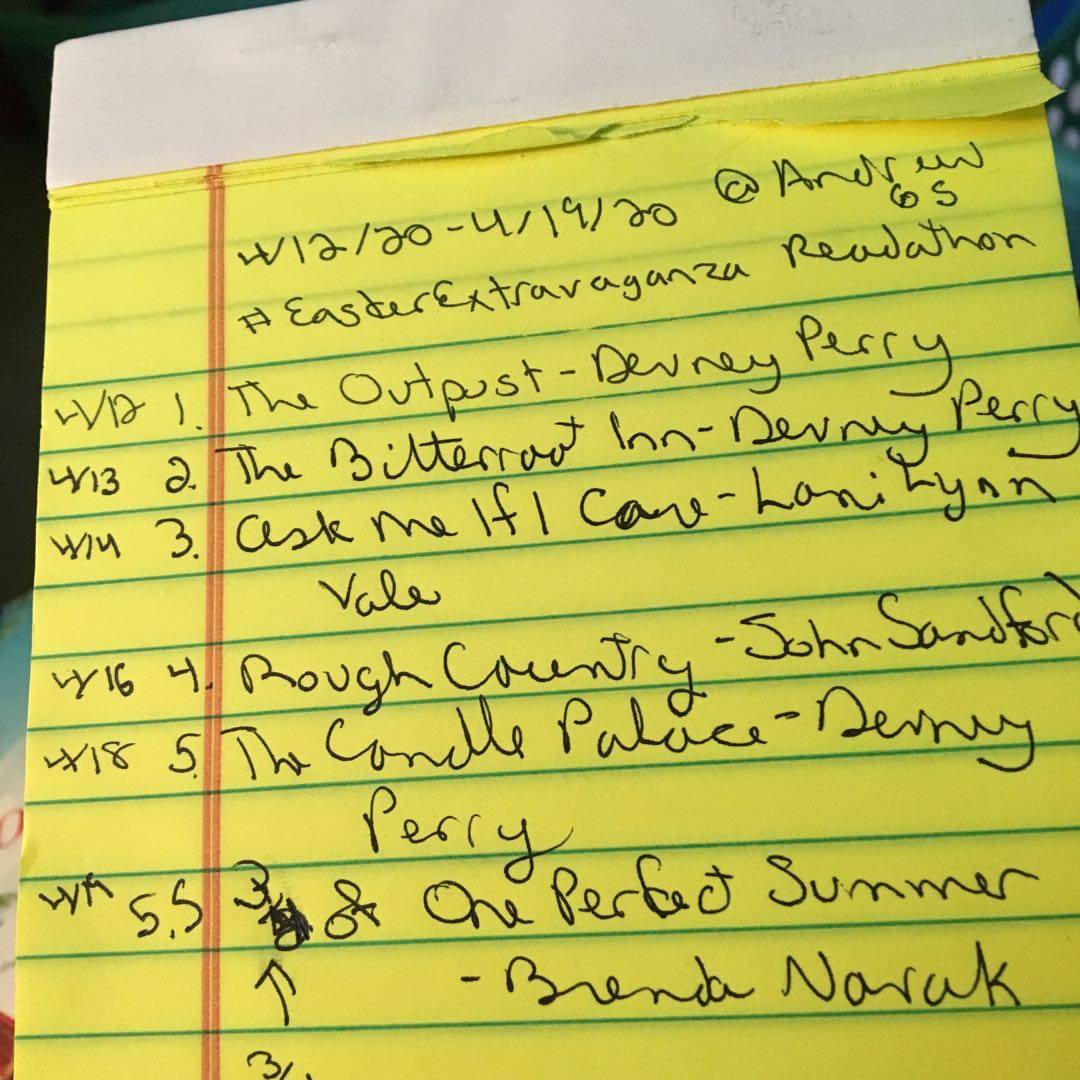 @Andrew
65
4/12/20-4/19/20
#EasterExtravaganza Readathon
4/12 1. The Outpost-Devney Perry
4/13 2. The Bitterroot Inn-Devney Perry
4/14 3. Ask Me If I Care-Lani Lynn
Vale
4/16 4. Rough Country-John Sandford
4/18 5. The Candle Palace-Devney
Perry
4/19 5.5 3/ of One Perfect Summer
-Brenda Novak
↑
3/